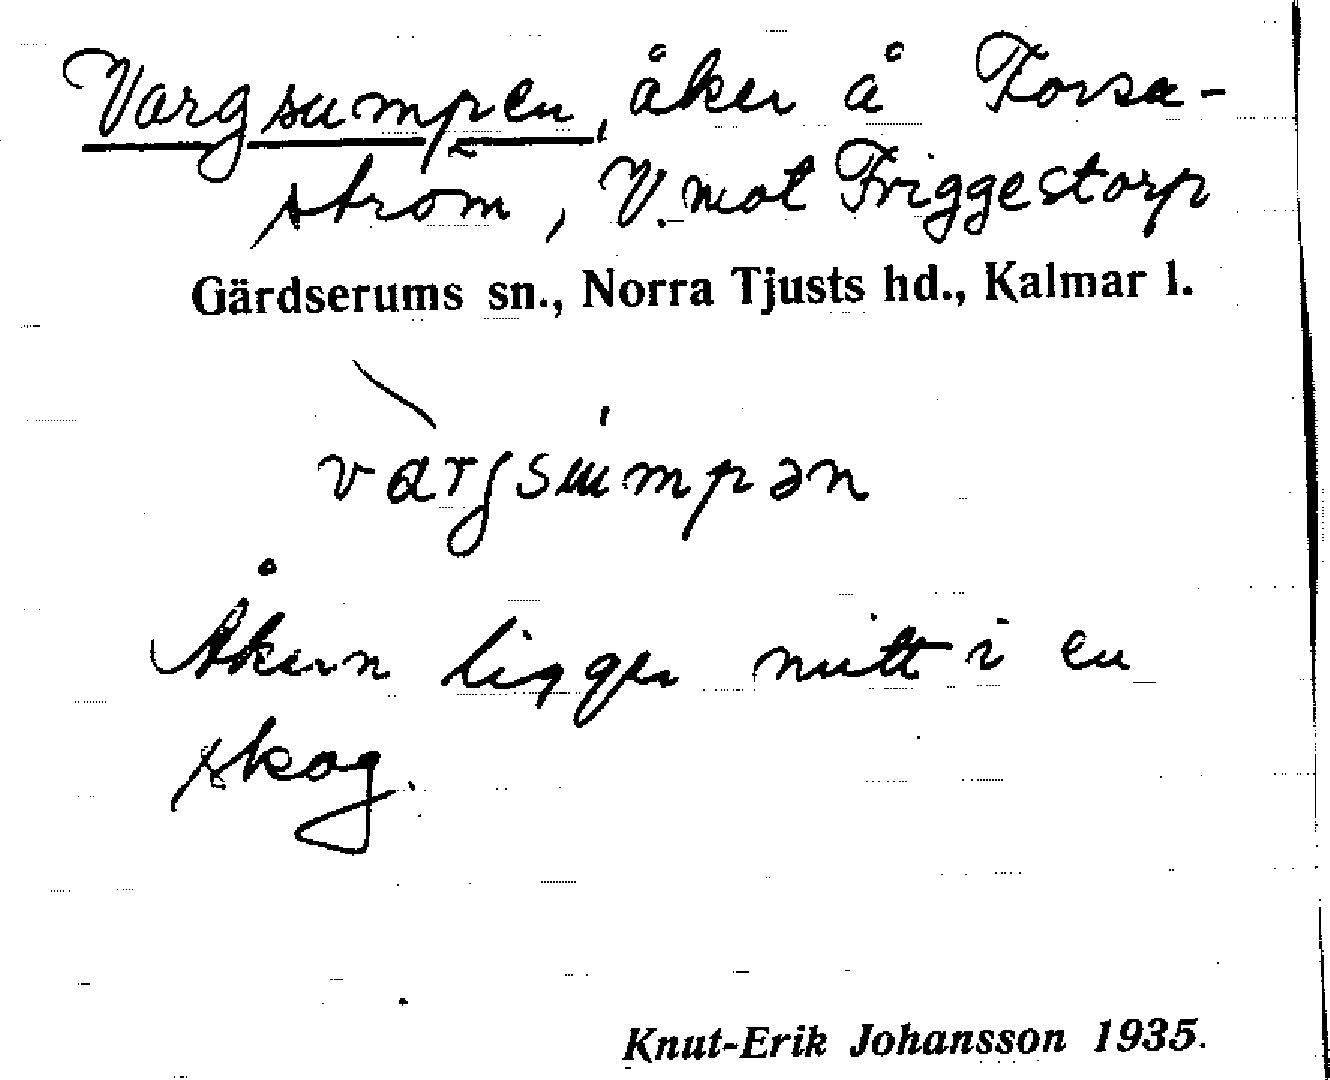 Vargsumpen, åker å Forsa-
ström, V. mot Friggestorp
Gärdserums sn., Norra Tjusts hd., Kalmar l.
vàrgsumpən
Åkern ligger mitt i en
skog.
Knut-Erik Johansson 1935.